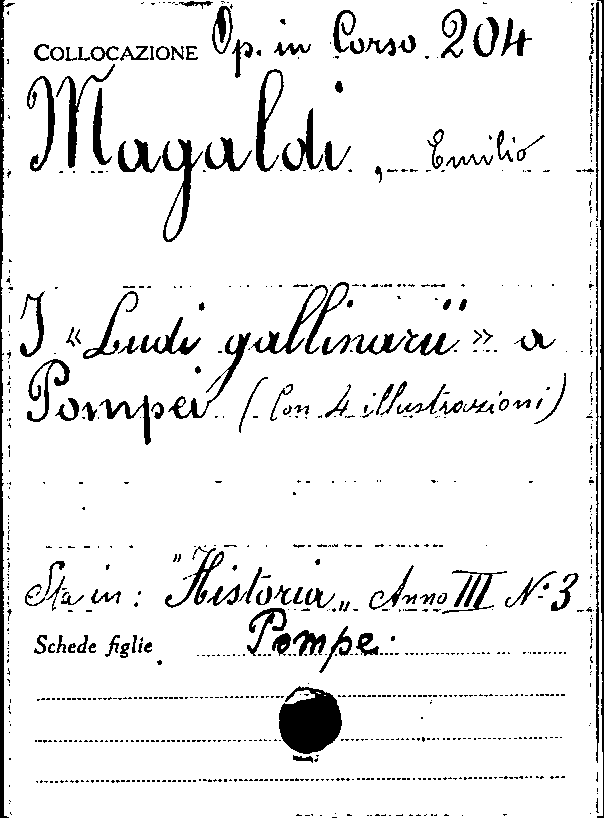 COLLOCAZIONE Op. in Corso 204
Magaldi, Emilio
I «Ludi gallinarii» a
Pompei (Con 4 illustrazioni)
Sta in: "Historia„ Anno III N. 3
Schede figlie Pompei